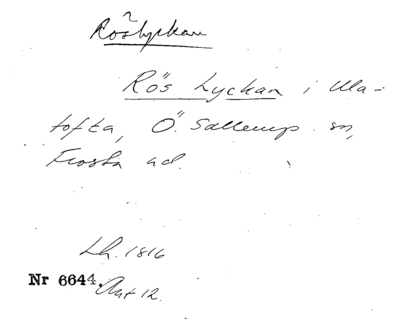 Röslyckan
Rös Lyckan i Ula-
tofta, Ö. Sallerup sn,
Frosta hd.
Lh. 1816
Nr 6644. Akt 12.